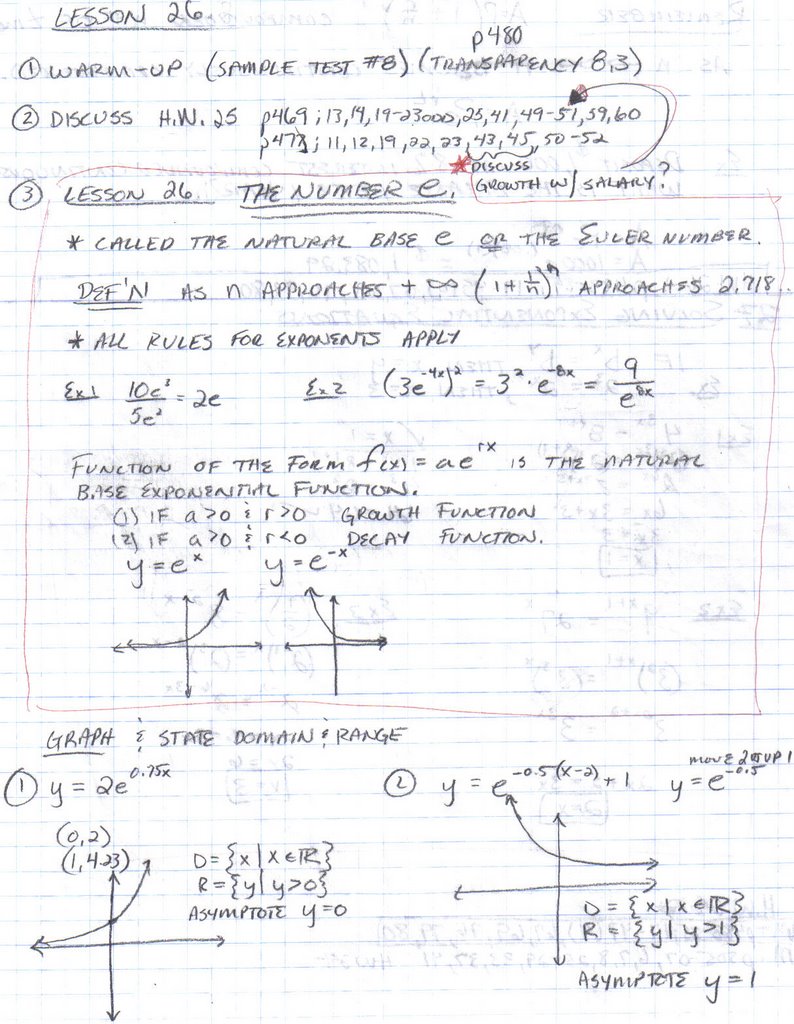 LESSON 26
p480
① WARM-UP (SAMPLE TEST #8) (TRANSPARENCY 8,3)
② DISCUSS H.W. 25 p469; 13,14,19-23 ODD, 25, 41, 49-51, 59, 60
p473; 11, 12, 19, 22, 23, 43, 45, 50-52
* DISCUSS
GROWTH W/ SALARY?
③ LESSON 26 THE NUMBER e.
* CALLED THE NATURAL BASE e OR THE EULER NUMBER.
DEF'N AS n APPROACHES +∞ (1+1/n)^n APPROACHES 2.718..
* ALL RULES FOR EXPONENTS APPLY
Ex1 10e^3/5e^2 = 2e Ex2 (3e^-4x)^2 = 3^2·e^-8x = 9/e^8x
FUNCTION OF THE FORM f(x) = ae^rx IS THE NATURAL
BASE EXPONENTIAL FUNCTION.
(1) IF a>0 & r>0 GROWTH FUNCTION
(2) IF a>0 & r<0 DECAY FUNCTION.
y=e^x y=e^-x
GRAPH & STATE DOMAIN & RANGE
① y = 2e^0.75x ② y = e^-0.5(x-2) + 1 y=e^-0.5
move 2 UP 1
(0,2)
(1,4.23)
D={x|x∈ℝ}
R={y|y>0}
ASYMPTOTE y=0
D = {x|x∈ℝ}
R = {y|y>1}
ASYMPTOTE y=1